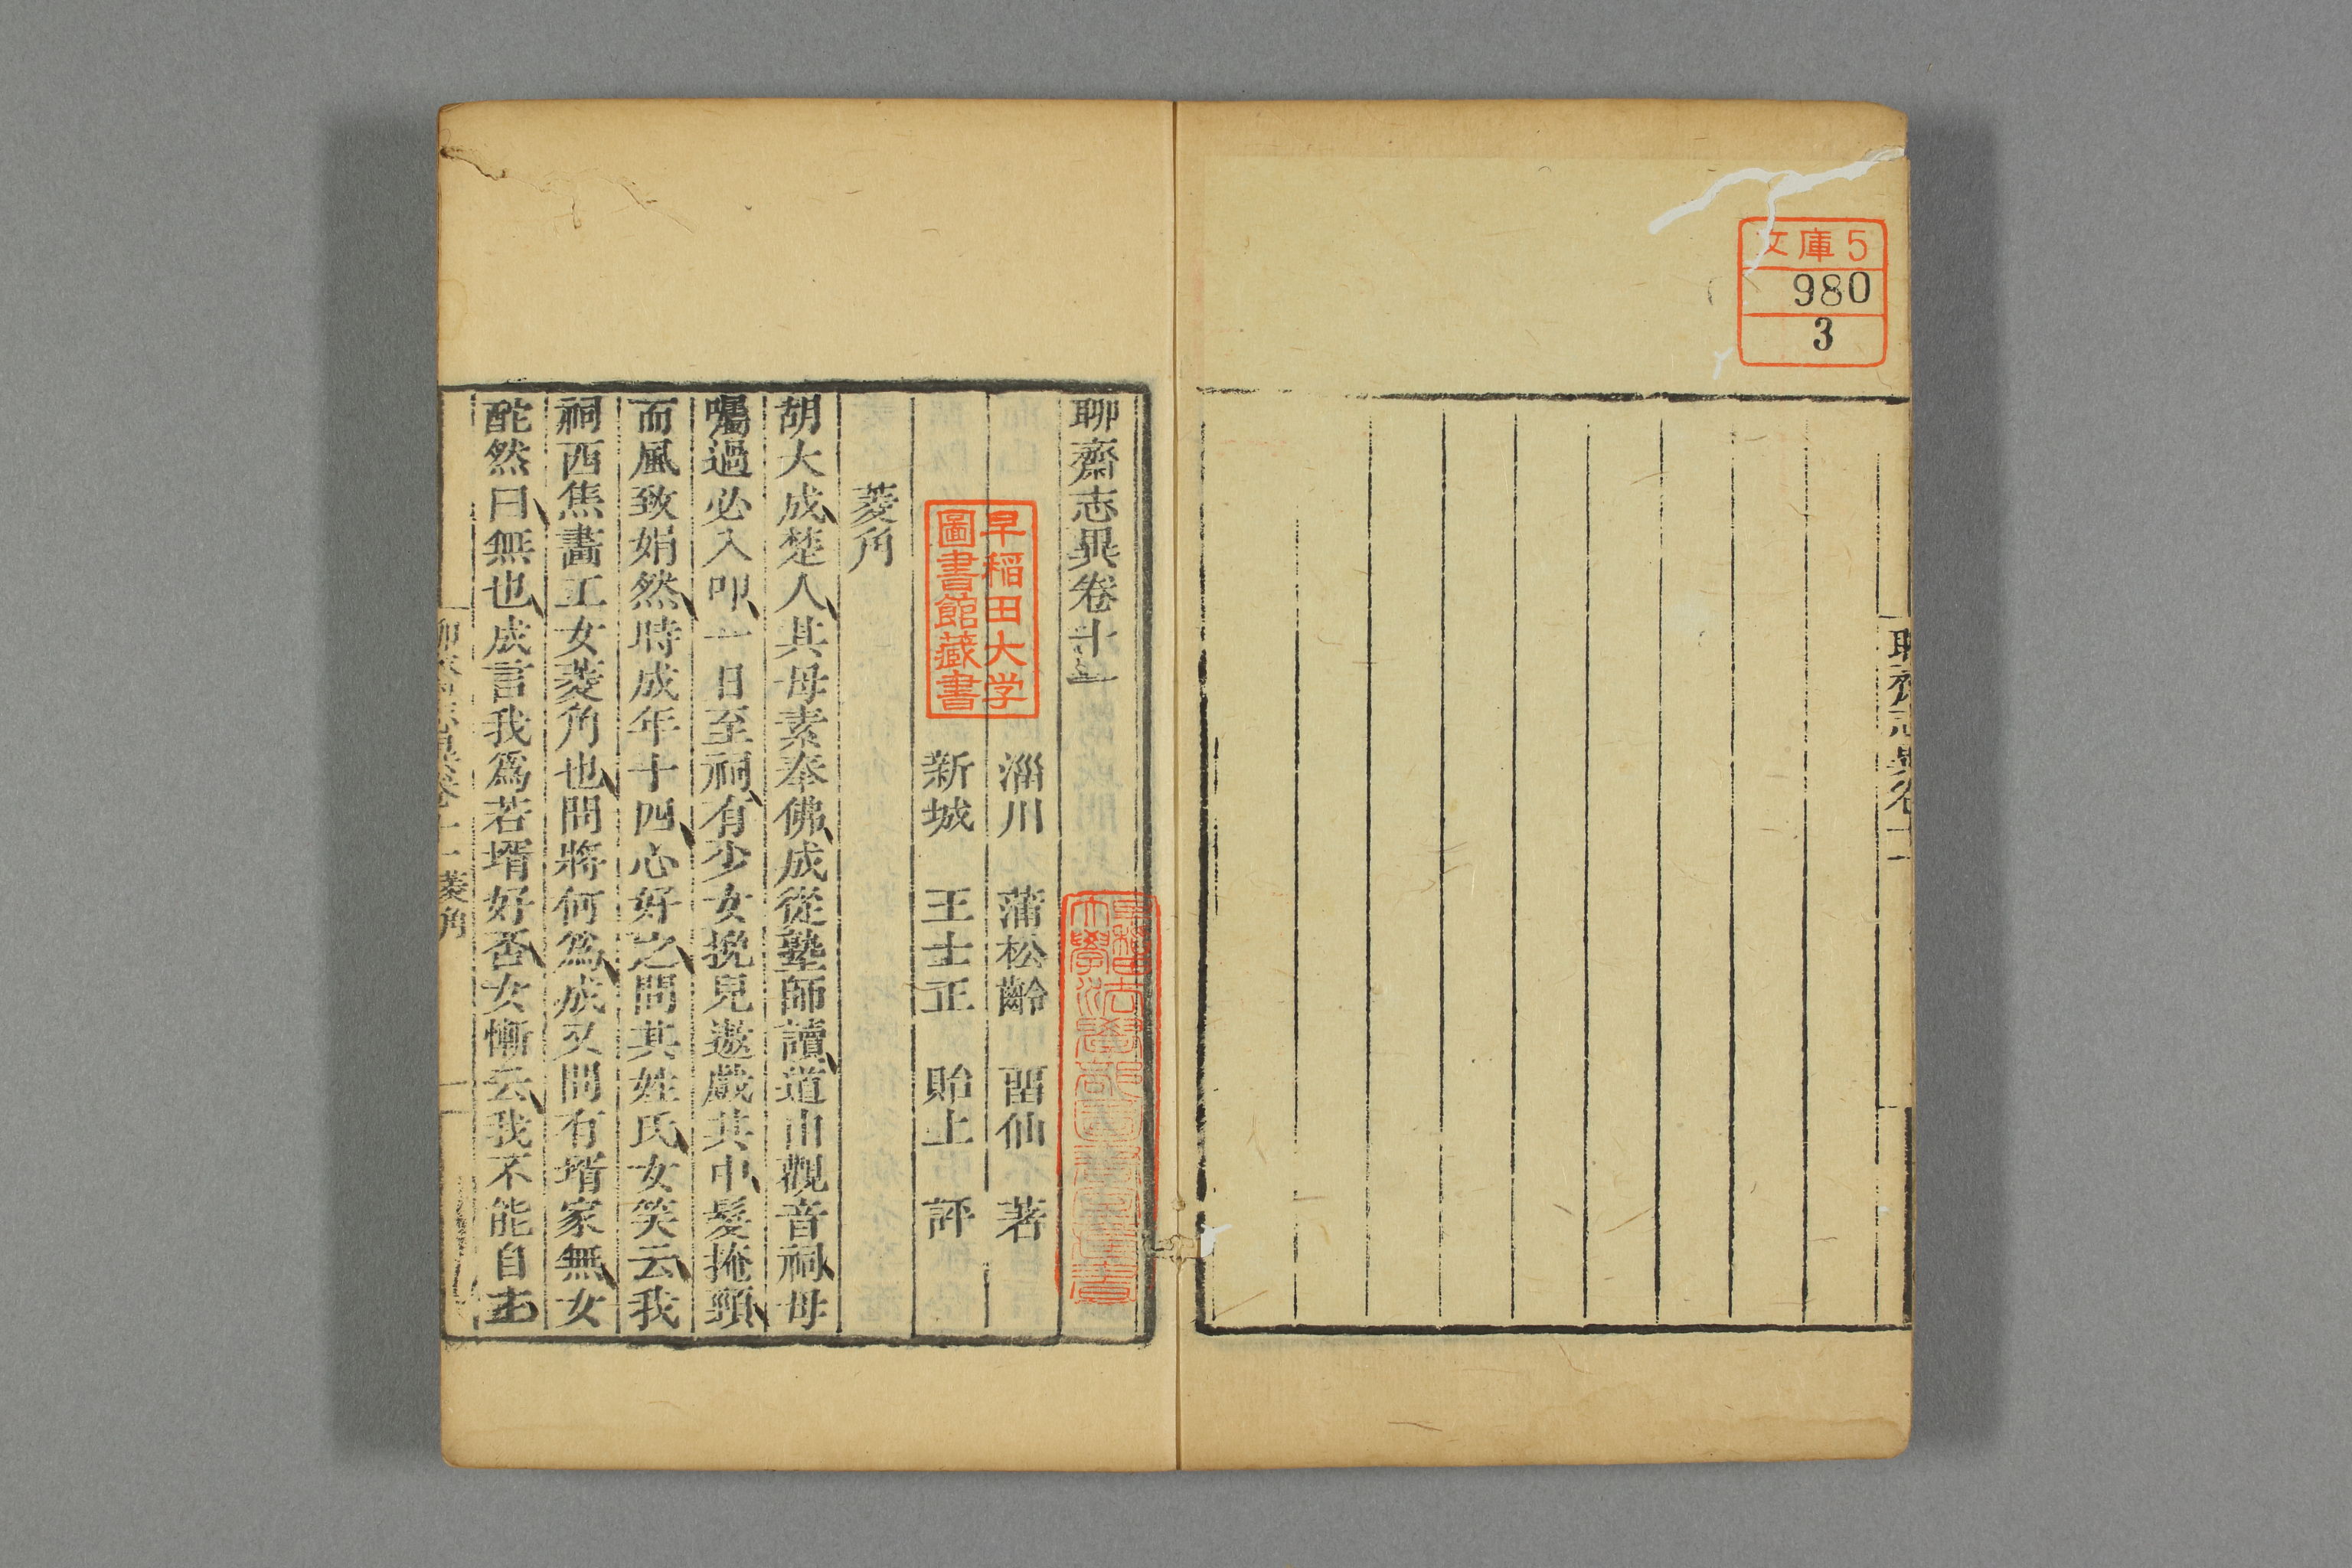 文庫5
980
3
聊齋志異卷十一
淄川 蒲松齡 畱仙 著
新城 王士正 貽上 評
早稲田大学
圖書館藏書
菱角
胡大成楚人其母素奉佛成從塾師讀道由觀音祠母
囑過必入叩一日至祠有少女挽兒遨戲其中髮掩頸
而風致娟然時成年十四心好之問其姓氏女笑云我
祠西焦畵工女菱角也問將何爲成又問有壻家無女
酡然曰無也成言我爲若壻好否女慚云我不能自主
菱角